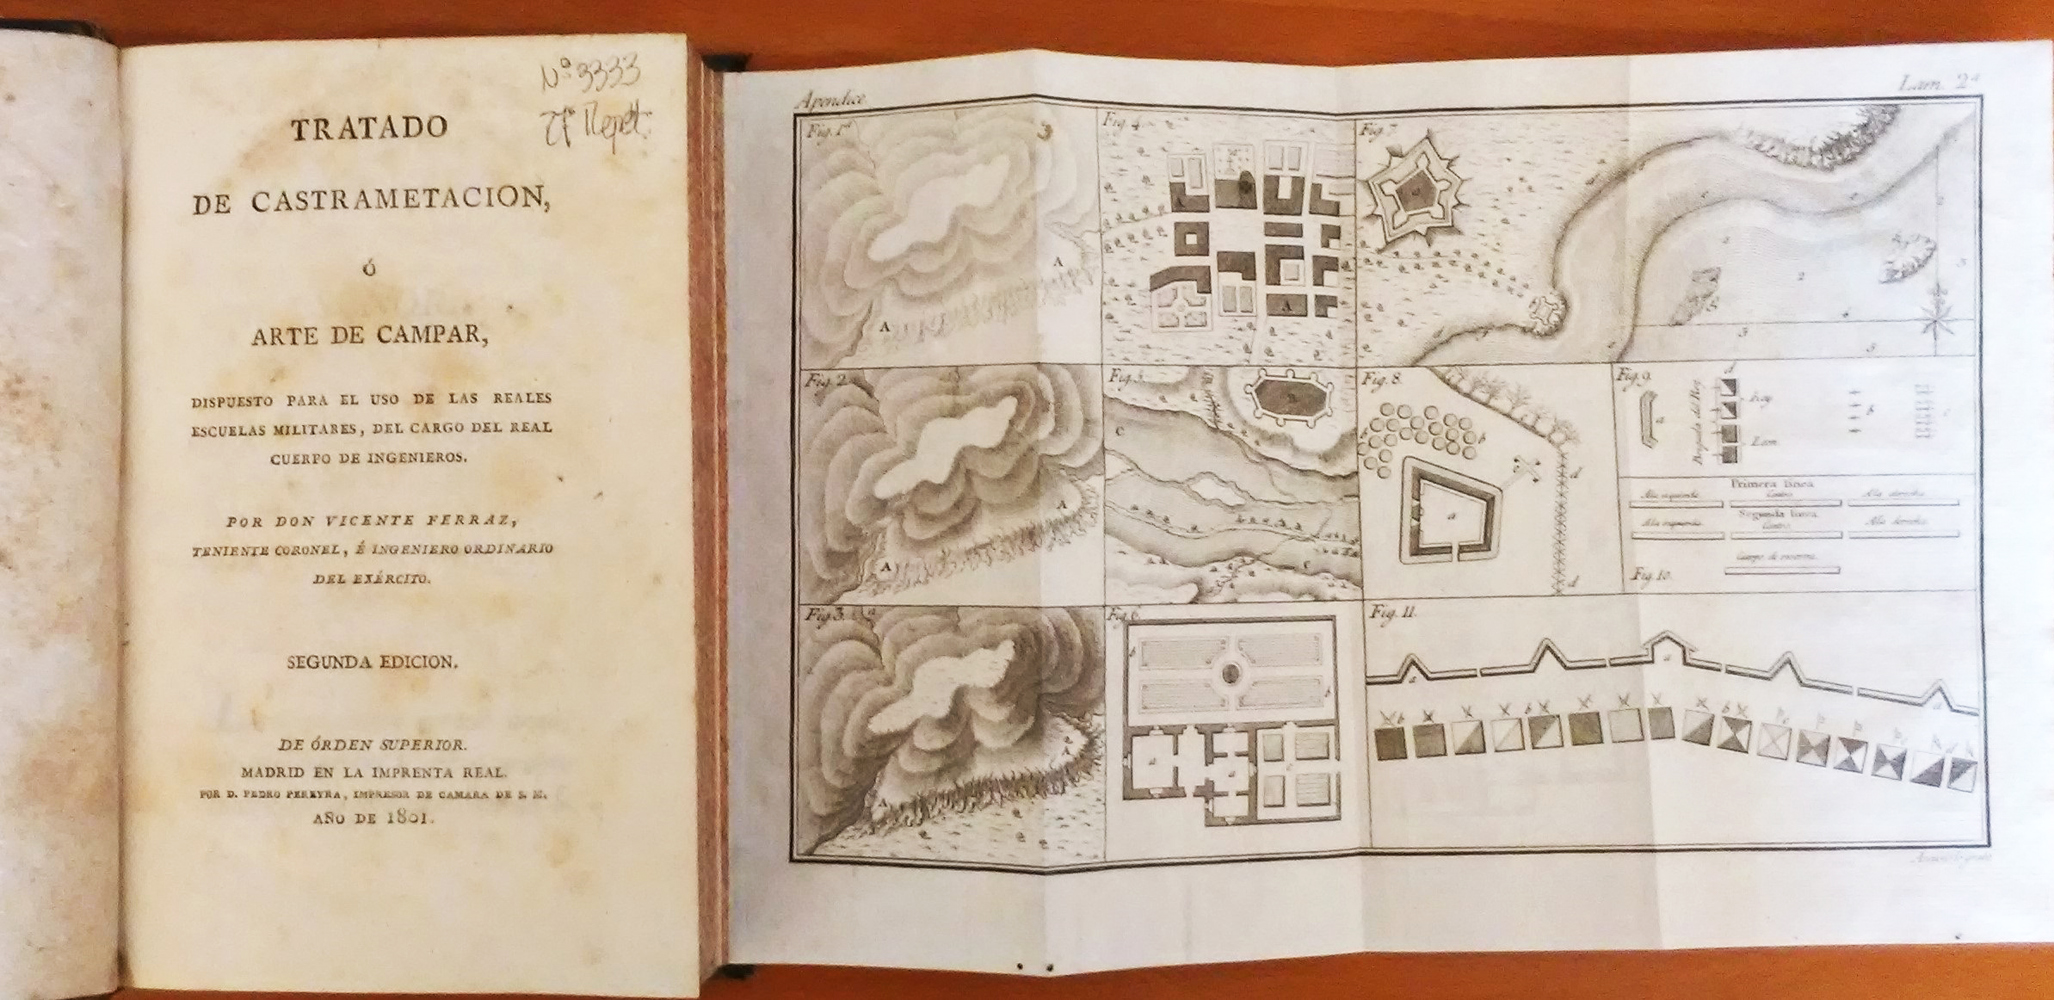 Nº 3333
TRATADO
DE CASTRAMETACION,
Ó
ARTE DE CAMPAR,
DISPUESTO PARA EL USO DE LAS REALES
ESCUELAS MILITARES, DEL CARGO DEL REAL
CUERPO DE INGENIEROS.
POR DON VICENTE FERRAZ,
TENIENTE CORONEL, É INGENIERO ORDINARIO
DEL EXÉRCITO.
SEGUNDA EDICION.
DE ÓRDEN SUPERIOR.
MADRID EN LA IMPRENTA REAL.
POR D. PEDRO PEREYRA, IMPRESOR DE CAMARA DE S. M.
AÑO DE 1801.
Apendice
Lam. 2ª
Fig. 1ª
3
A
A
Fig. 2
A
A
Fig. 3
A
A
Fig. 4
A
Fig. 5
B
C
c
Fig. 6
b
b
a
a
c
Fig. 7
a
Fig. 8
b
b
a
d
d
Fig. 9
a
d
Brigada del Rey
Rey
Leon
b
Primera linea
Ala izquierda
Centro
Ala derecha
Segunda linea
Ala izquierda
Centro
Ala derecha
Cuerpo de reserva
Fig. 10.
Fig. 11.
a
a
a
b
b
b